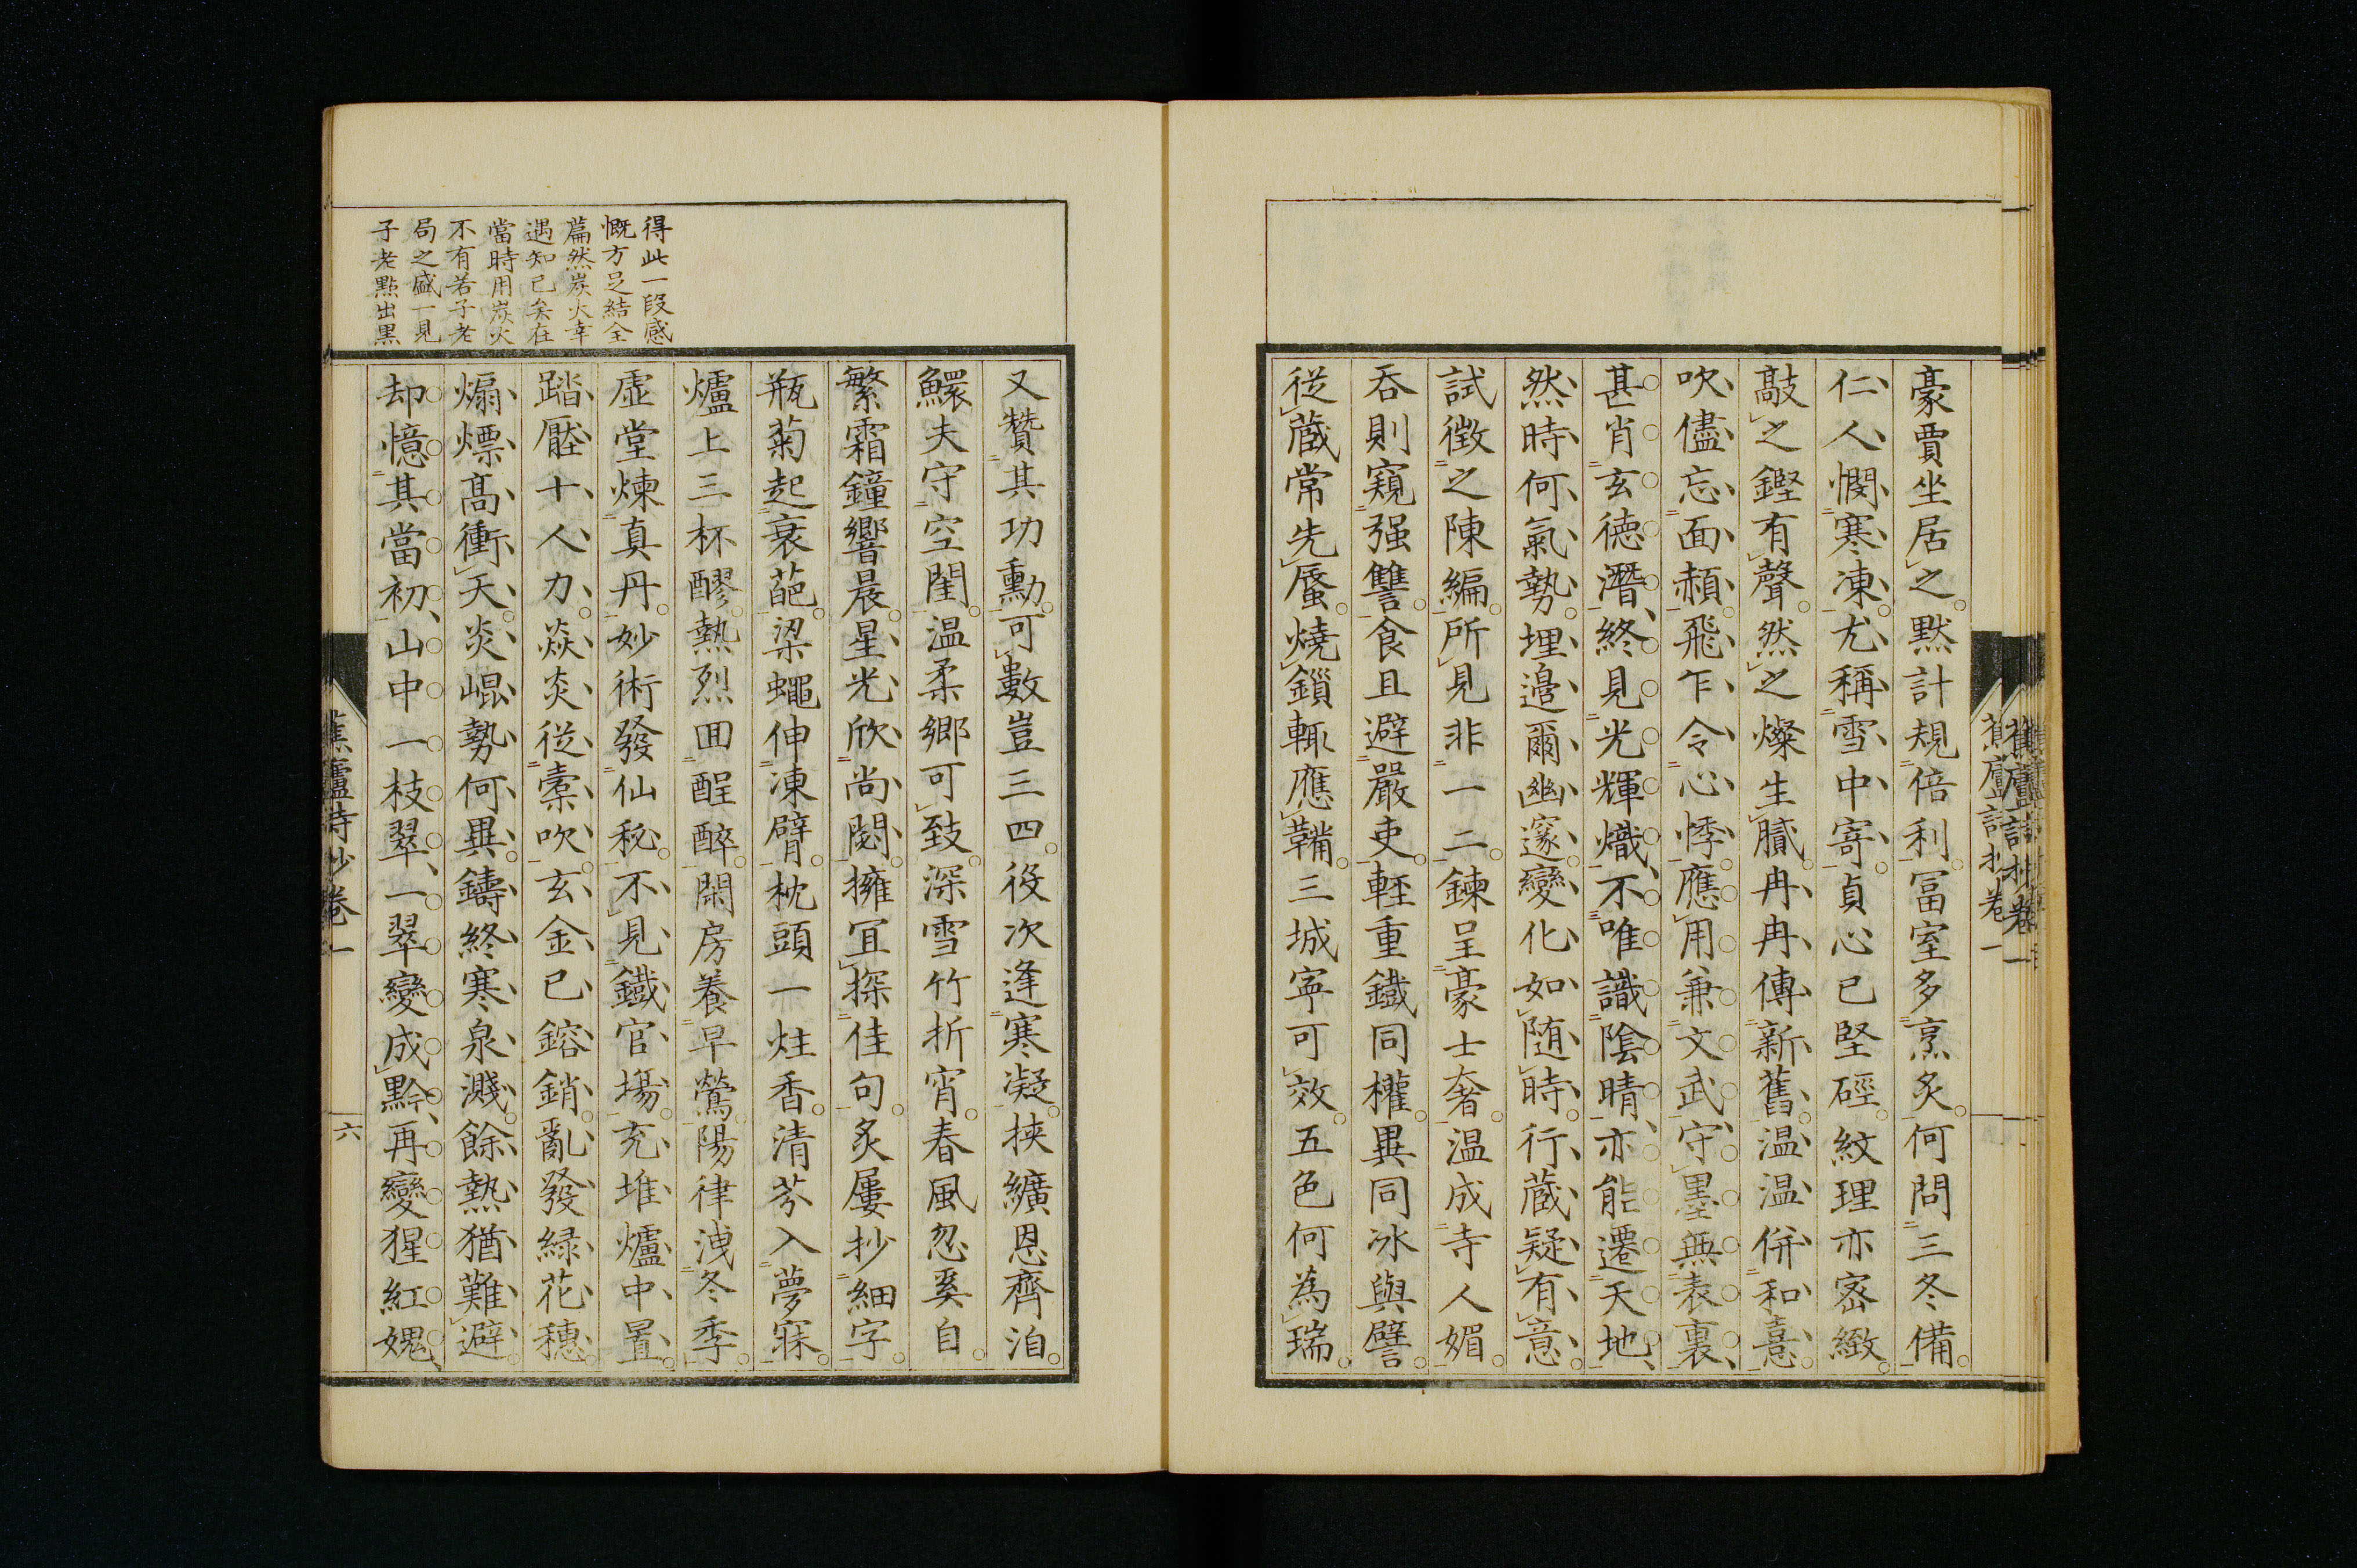 豪賈坐居之默計規倍利冨室多烹炙何問三冬備
仁人憫寒凍尤稱雪中寄貞心已堅硜紋理亦宻緻
敲之鏗有聲然之燦生膩冉冉傳新舊温温併和憙
吹儘忘面頳飛乍令心悸應用兼文武守墨無表裏
甚肖玄徳潛終見光輝熾不唯識陰晴亦能遷天地
然時何氣勢埋邉爾幽邃變化如随時行蔵疑有意
試徴之陳編所見非一二鍊呈豪士奢温成寺人媚
呑則窺强讐食且避嚴吏輕重鐡同權異同冰與譬
従蔵常先蜃燒鎻輙應鞴三城寜可效五色何為瑞
蕉廬詩抄卷一
得此一段感
慨方足結全
篇然炭火幸
遇知已矣在
當時用炭火
不有若子老
局之盛一見
子老點出黒
又贊其功勳可數豈三四役次逢寒凝挾纊恩齊洎
鰥夫守空閨温柔郷可致深雪竹折宵春風忽奚自
繁霜鐘響晨星光欣尚閟擁冝探佳句炙屢抄細字
瓶菊起衰葩梁蠅伸凍臂枕頭一炷香清芬入夢寐
爐上三杯醪熱烈囬酲醉閑房養早鶯陽律洩冬季
虚堂煉真丹妙術發仙秘不見鐡官塲充堆爐中置
踏壓十人力焱炎従橐吹玄金已鎔銷亂發緑花穗
煽熛髙衝天炎崐勢何異鑄終寒泉濺餘熱猶難避
却憶其當初山中一枝翠一翠變成黔再變猩紅媿
蕉廬詩抄卷一
六